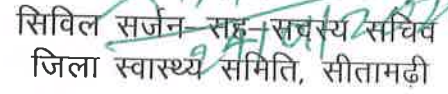 सिविल सर्जन-सह-सदस्य सचिव
जिला स्वास्थ्य समिति, सीतामढ़ी